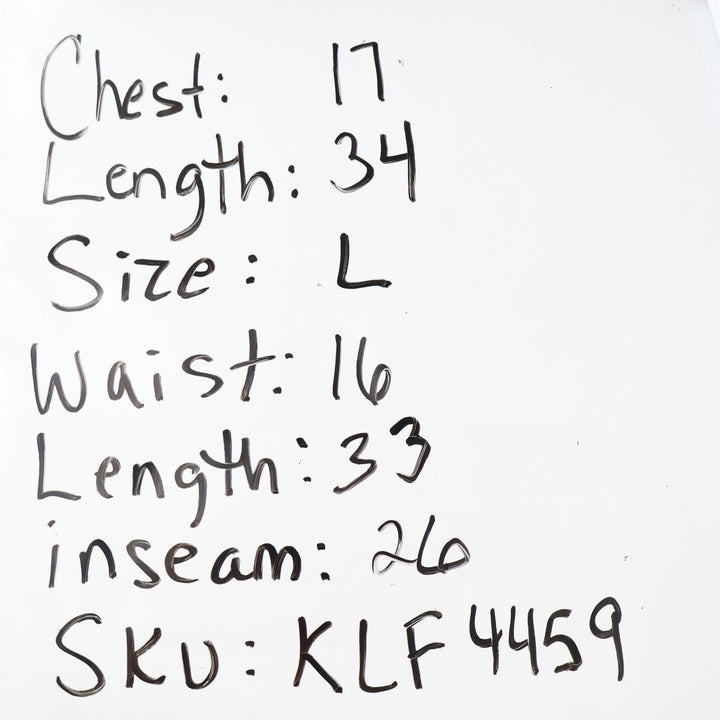 Chest: 17
Length: 34
Size: L
Waist: 16
Length: 33
inseam: 26
SKU: KLF4459